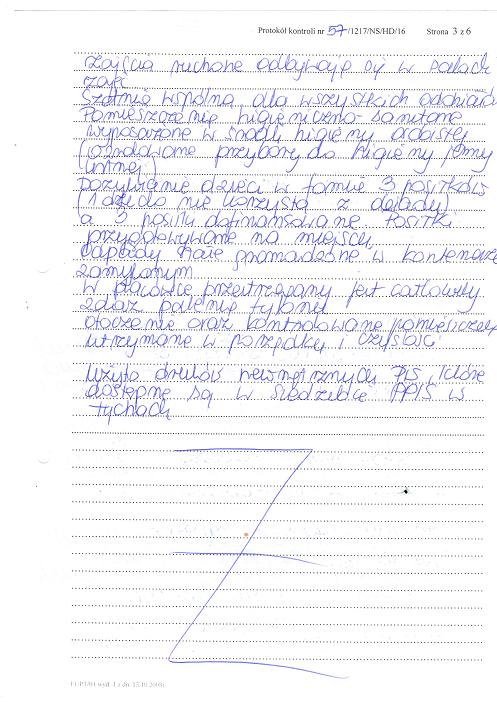 Protokół kontroli nr 57/1217/NS/HD/16 Strona 3 z 6
Zajęcia ruchowe odbywają się w salach
zajęć
Szatnia wspólna dla wszystkich oddziałów
Pomieszczenie higieniczno-sanitarne
wyposażone w środki higieny osobistej
(oznakowane przybory do higieny jamy
ustnej)
pożywianie dzieci w formie 3 posiłków
(1 dziecko nie korzysta z obiadu)
a 3 posiłki dofinansowane Posiłki
przygotowywane na miejscu
Odpady stałe gromadzone w kontenerze
zamykanym
W placówce przestrzegany jest całkowity
zakaz palenia tytoniu
otoczenie oraz kontrolowane pomieszczenia
utrzymane w porządku i czystości
Użyto druków wewnętrznych PIS, które
dostępne są w siedzibie PPIS w
Tychach
F1/PT/01 wyd. I z dn. 15.10.2008r